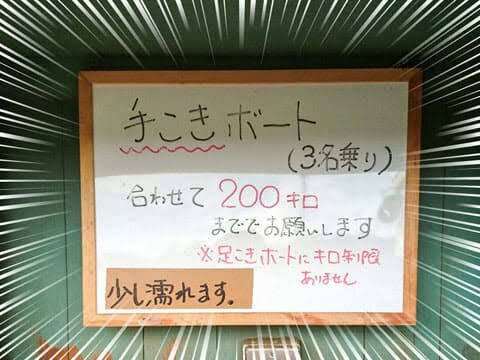 手こきボート
(3名乗り)
合わせて 200キロ
まででお願いします
※足こきボートにキロ制限
ありません
少し濡れます。